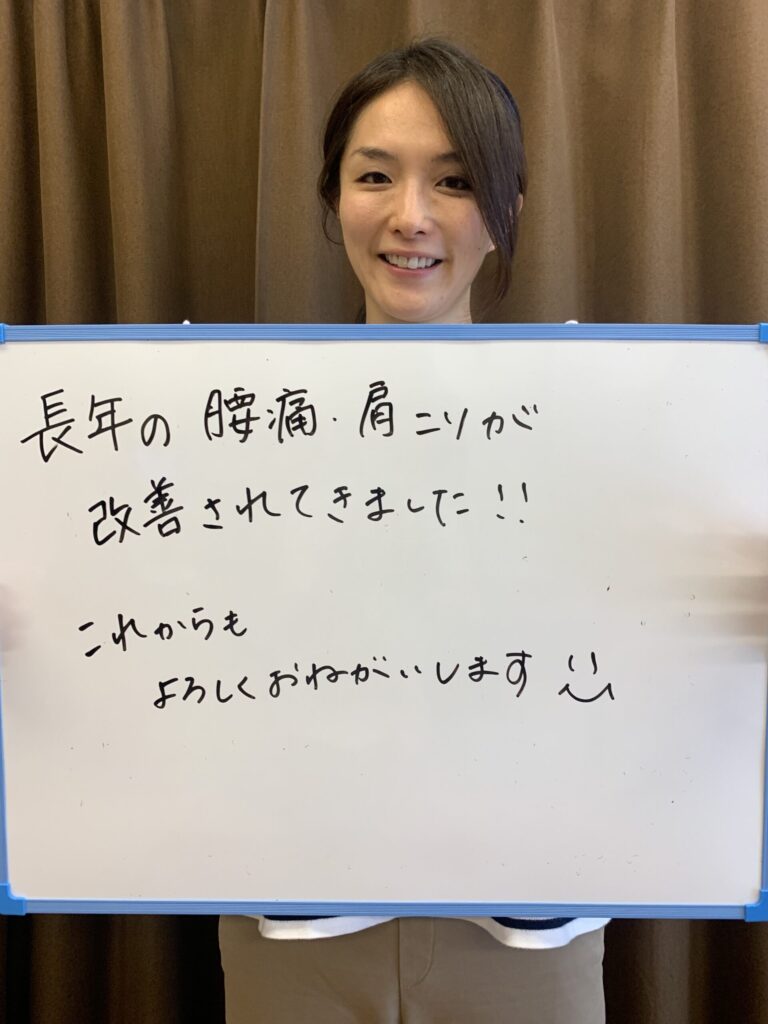 長年の 腰痛・肩コリが
改善されてきました!!
これからも
よろしくおねがいします